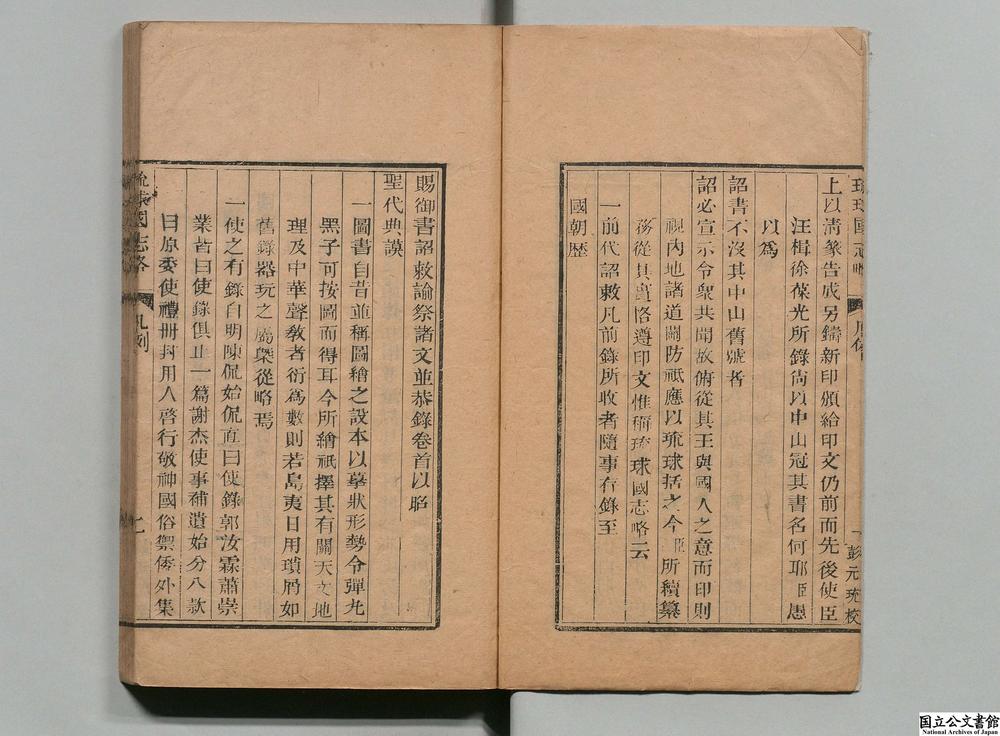 琉球國志略
彭元珫校
上以清篆告成另鑄新印頒給印文仍前而先後使臣
汪楫徐葆光所錄尙以中山冠其書名何耶臣愚
以為
詔書不沒其中山舊號者
詔必宣示令衆共聞故俯從其王與國人之意而印則
視內地諸道關防祇應以琉球括之今臣所續纂
務從其實恪遵印文惟稱琉球國志略云
一前代詔敕凡前錄所收者隨事存錄至
國朝歷
賜御書詔敕諭祭諸文並恭錄卷首以昭
聖代典謨
一圖書自昔並稱圖繪之設本以摹狀形勢令彈丸
黑子可按圖而得耳今所繪祇擇其有關天文地
理及中華聲敎者衍爲數則若島夷日用瑣屑如
舊錄器玩之屬槩從略焉
一使之有錄自明陳侃始侃直曰使錄郭汝霖蕭崇
業皆曰使錄俱止一篇謝杰使事補遺始分八款
曰原委使禮冊封用人啓行敬神國俗禦倭外集
琉球國志略
凡例
七
国立公文書館
National Archives of Japan